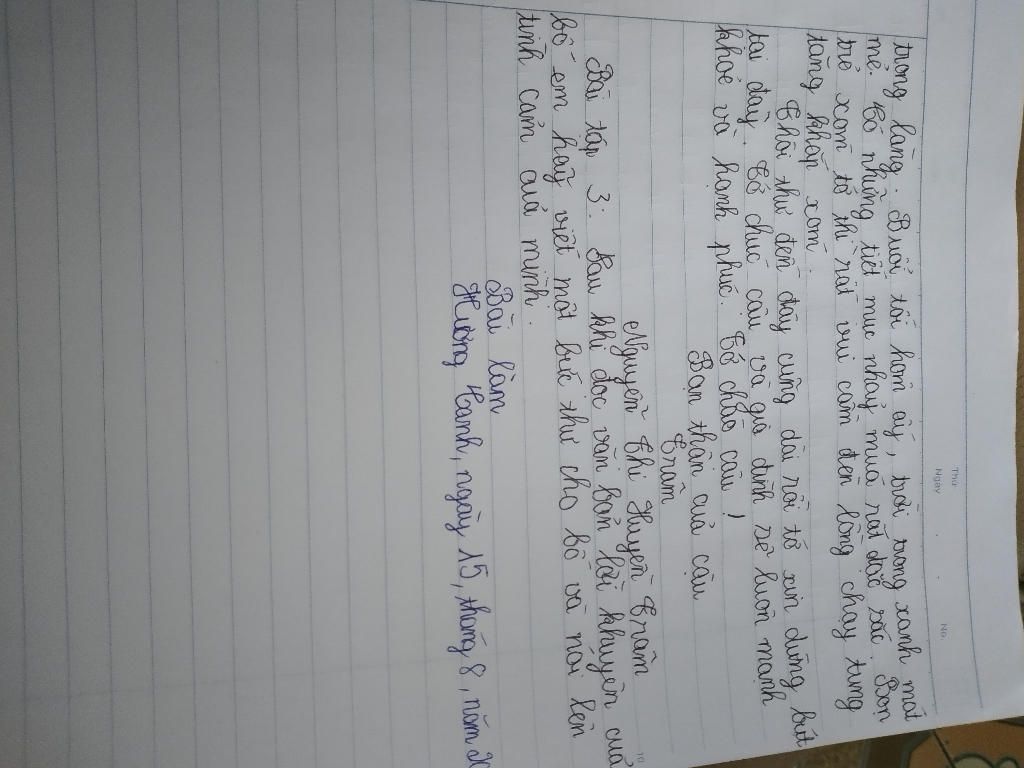 Thứ
Ngày
No.
trong làng. Buổi tối hôm ấy, trời trong xanh mát
mẻ. Có những tiết mục nhảy múa rất đặc sắc. Bọn
trẻ xóm tớ thì rất vui cầm đèn lồng chạy tung
tăng khắp xóm.
Thôi thư đến đây cũng dài rồi tớ xin dừng bút
tại đây. Tớ chúc cậu và gia đình sẽ luôn mạnh
khoẻ và hạnh phúc. Tớ chào cậu!
Bạn thân của cậu
Trâm
Nguyễn Thị Huyền Trâm
Bài tập 3: Sau khi đọc văn bản lời khuyên của
bố em hãy viết một bức thư cho bố và nói lên
tình cảm của mình.
Bài làm
Hương Canh, ngày 15, tháng 8, năm 20